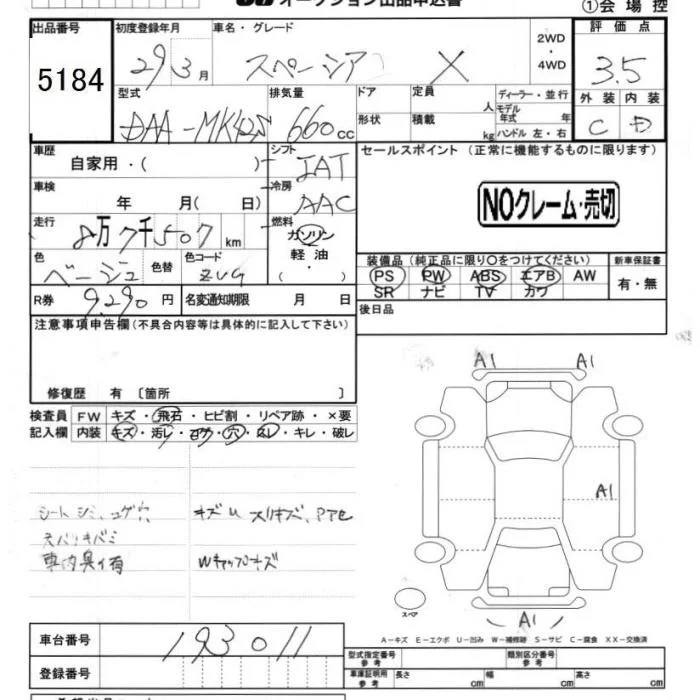 オークション出品申込書
①会場控
出品番号
5184
初度登録年月
29 3月
車名・グレード
スペーシア X
2WD
・
4WD
評価点
3.5
外装 内装
C D
型式
DAA-MK42S
排気量
660cc
ドア
形状
定員 人
積載 kg
ディーラー・並行
モデル年式 年
ハンドル 左・右
車歴
自家用・( )
シフト
IAT
車検
年 月( 日)
冷房
AAC
走行
8万7千507km
燃料
ガソリン
軽油
( )
色
ベージュ
色替
色コード
ZVG
R券
9,290円
名変通知期限 月 日
セールスポイント (正常に機能するものに限ります)
NOクレーム・売切
装備品(純正品に限り○をつけてください)
PS PW ABS エアB AW
SR ナビ TV カワ
新車保証書
有・無
後日品
注意事項申告欄(不具合内容等は具体的に記入して下さい)
修復歴 有 〔箇所 〕
検査員 FW キズ・飛石・ヒビ割・リペア跡・×要
記入欄 内装 キズ・汚レ・コゲ・穴・スレ・キレ・破レ
シートシミ、コゲ穴
天バリキバミ
車内臭イ有
キズU スリキズ、
Wキャップキズ
A1 A1
A1
A1
スペア
A-キズ E-エクボ U-凹み W-補修跡 S-サビ C-腐食 XX-交換済
車台番号
193011
登録番号
型式指定番号 参考
類別区分番号 参考
車庫証明用 参考
長さ cm 幅 cm 高さ cm